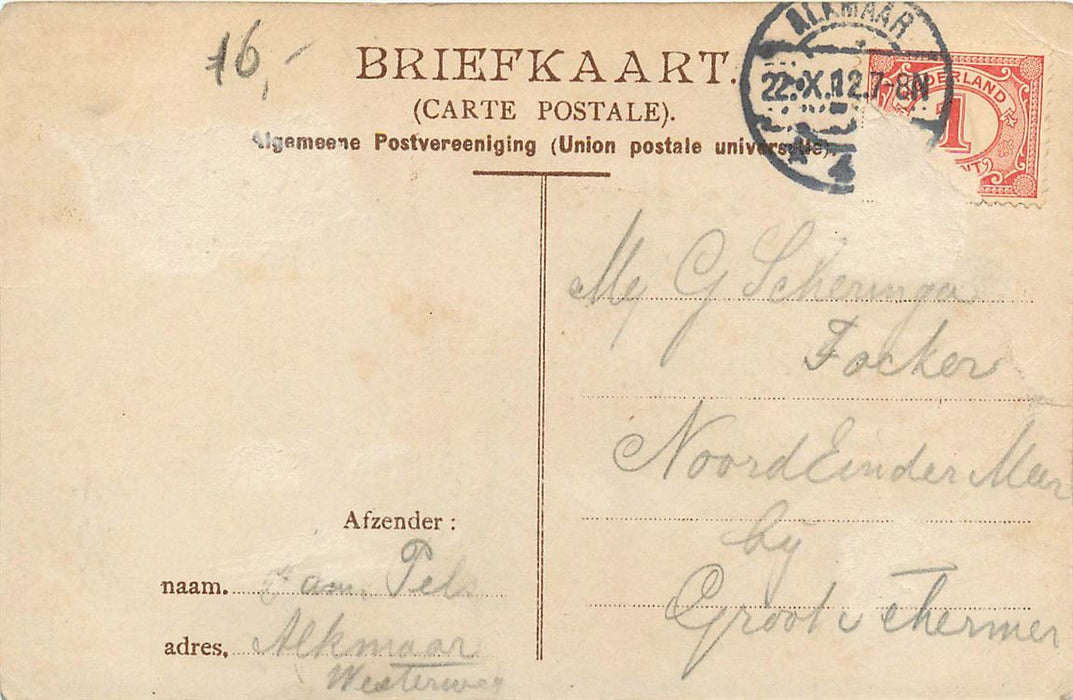 16,-
BRIEFKAART.
(CARTE POSTALE).
Algemeene Postvereeniging (Union postale universelle)
ALKMAAR
22.X.12.7-8N
4
NEDERLAND
1
Mej G Scheringa
Focker
NoordEinderMeer
bij
Groot Schermer
Afzender:
naam. Fam. Pel
adres. Alkmaar
Westerweg